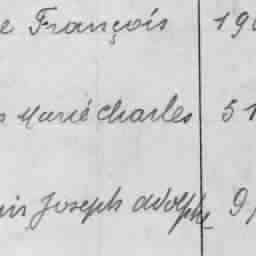 e François 190
s Marie Charles 51
uis Joseph adolphe 9/